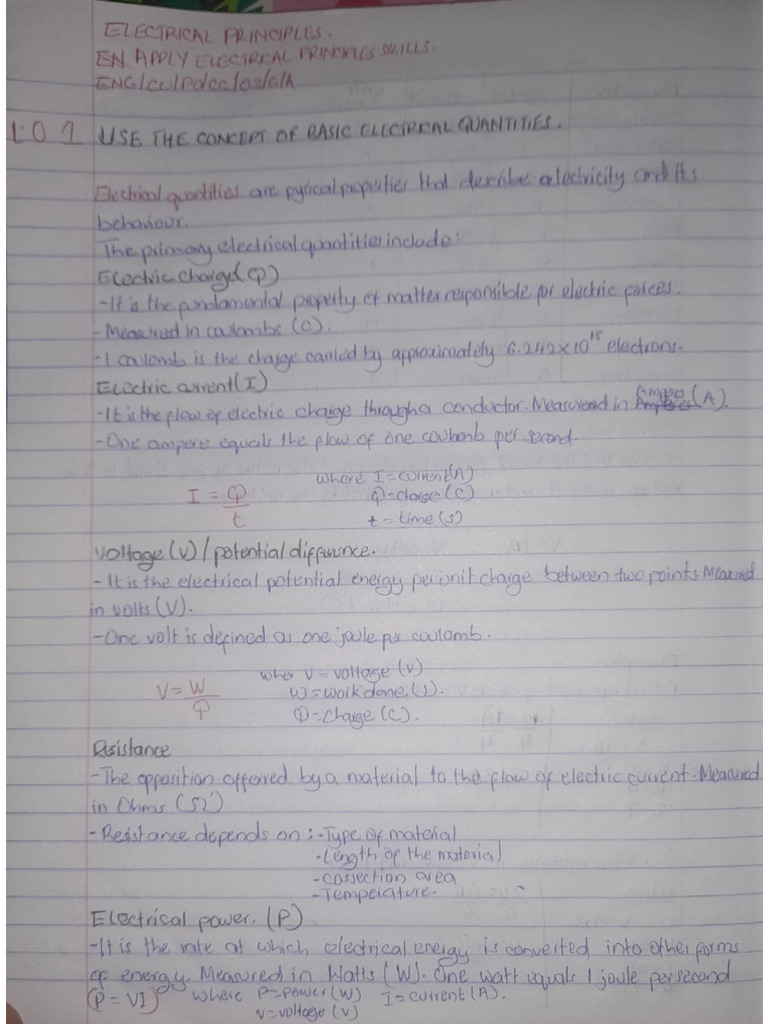 ELECTRICAL PRINCIPLES.
EN APPLY ELECTRICAL PRINCIPLES SKILLS.
ENG/CU/PO/CC/02/6/A
L.O 1 USE THE CONCEPT OF BASIC ELECTRICAL QUANTITIES.
Electrical quantities are pysical properties that describe electricity and its
behaviour.
The primary electrical quantities include:
Electric charge(Q)
-It is the fundamental property of matter responsible for electric forces.
-Measured in coulombs (C).
-1 coulomb is the charge carried by approximately 6.242×10¹⁸ electrons.
Electric current(I)
-It is the flow of electric charge through a conductor. Measured in Amps (A).
-One ampere equals the flow of one coulomb per second.
I = Q/t where I=current(A)
Q=charge(C)
t=time(s)
Voltage(V)/potential difference.
-It is the electrical potential energy per unit charge between two points. Measured
in volts (V).
-One volt is defined as one joule per coulomb.
V = W/Q wher V=voltage(V)
W=workdone(J).
Q=charge(C).
Resistance
-The opposition offerred by a material to the flow of electric current. Measured
in Ohms (Ω)
-Resistance depends on:-Type of material
-Length of the material
-cossection area
-Temperature.
Electrical power.(P)
-It is the rate at which electrical energy is converted into other forms
of energy. Measured in Watts (W). One watt equals 1 joule per second
(P=VI) where P=power(W) I=current(A).
V=voltage(V)